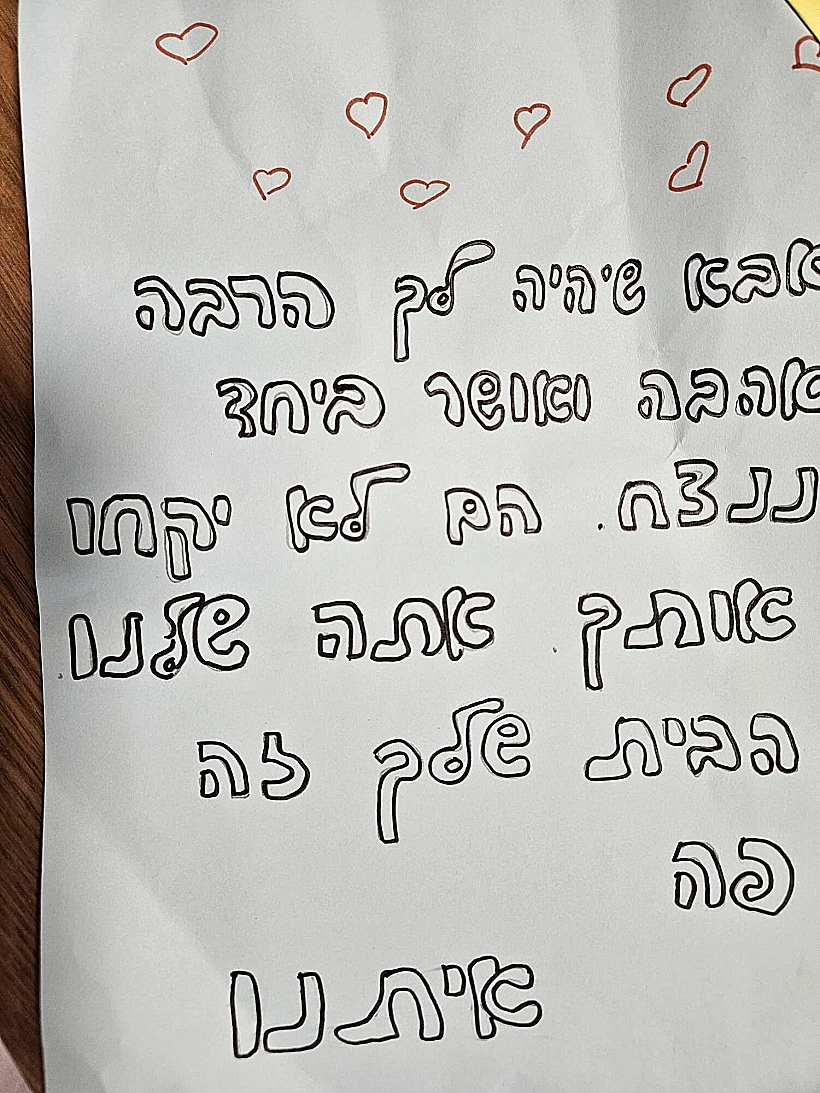 אבא שיהיה לך הרבה
אהבה ואושר ביחד
ננצח. הם לא יקחו
אותך. אתה שלנו.
הבית שלך זה
פה
איתנו